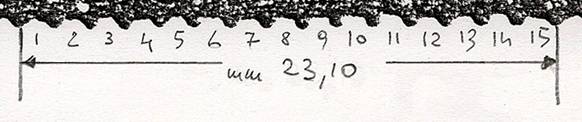 1 2 3 4 5 6 7 8 9 10 11 12 13 14 15
mm 23,10